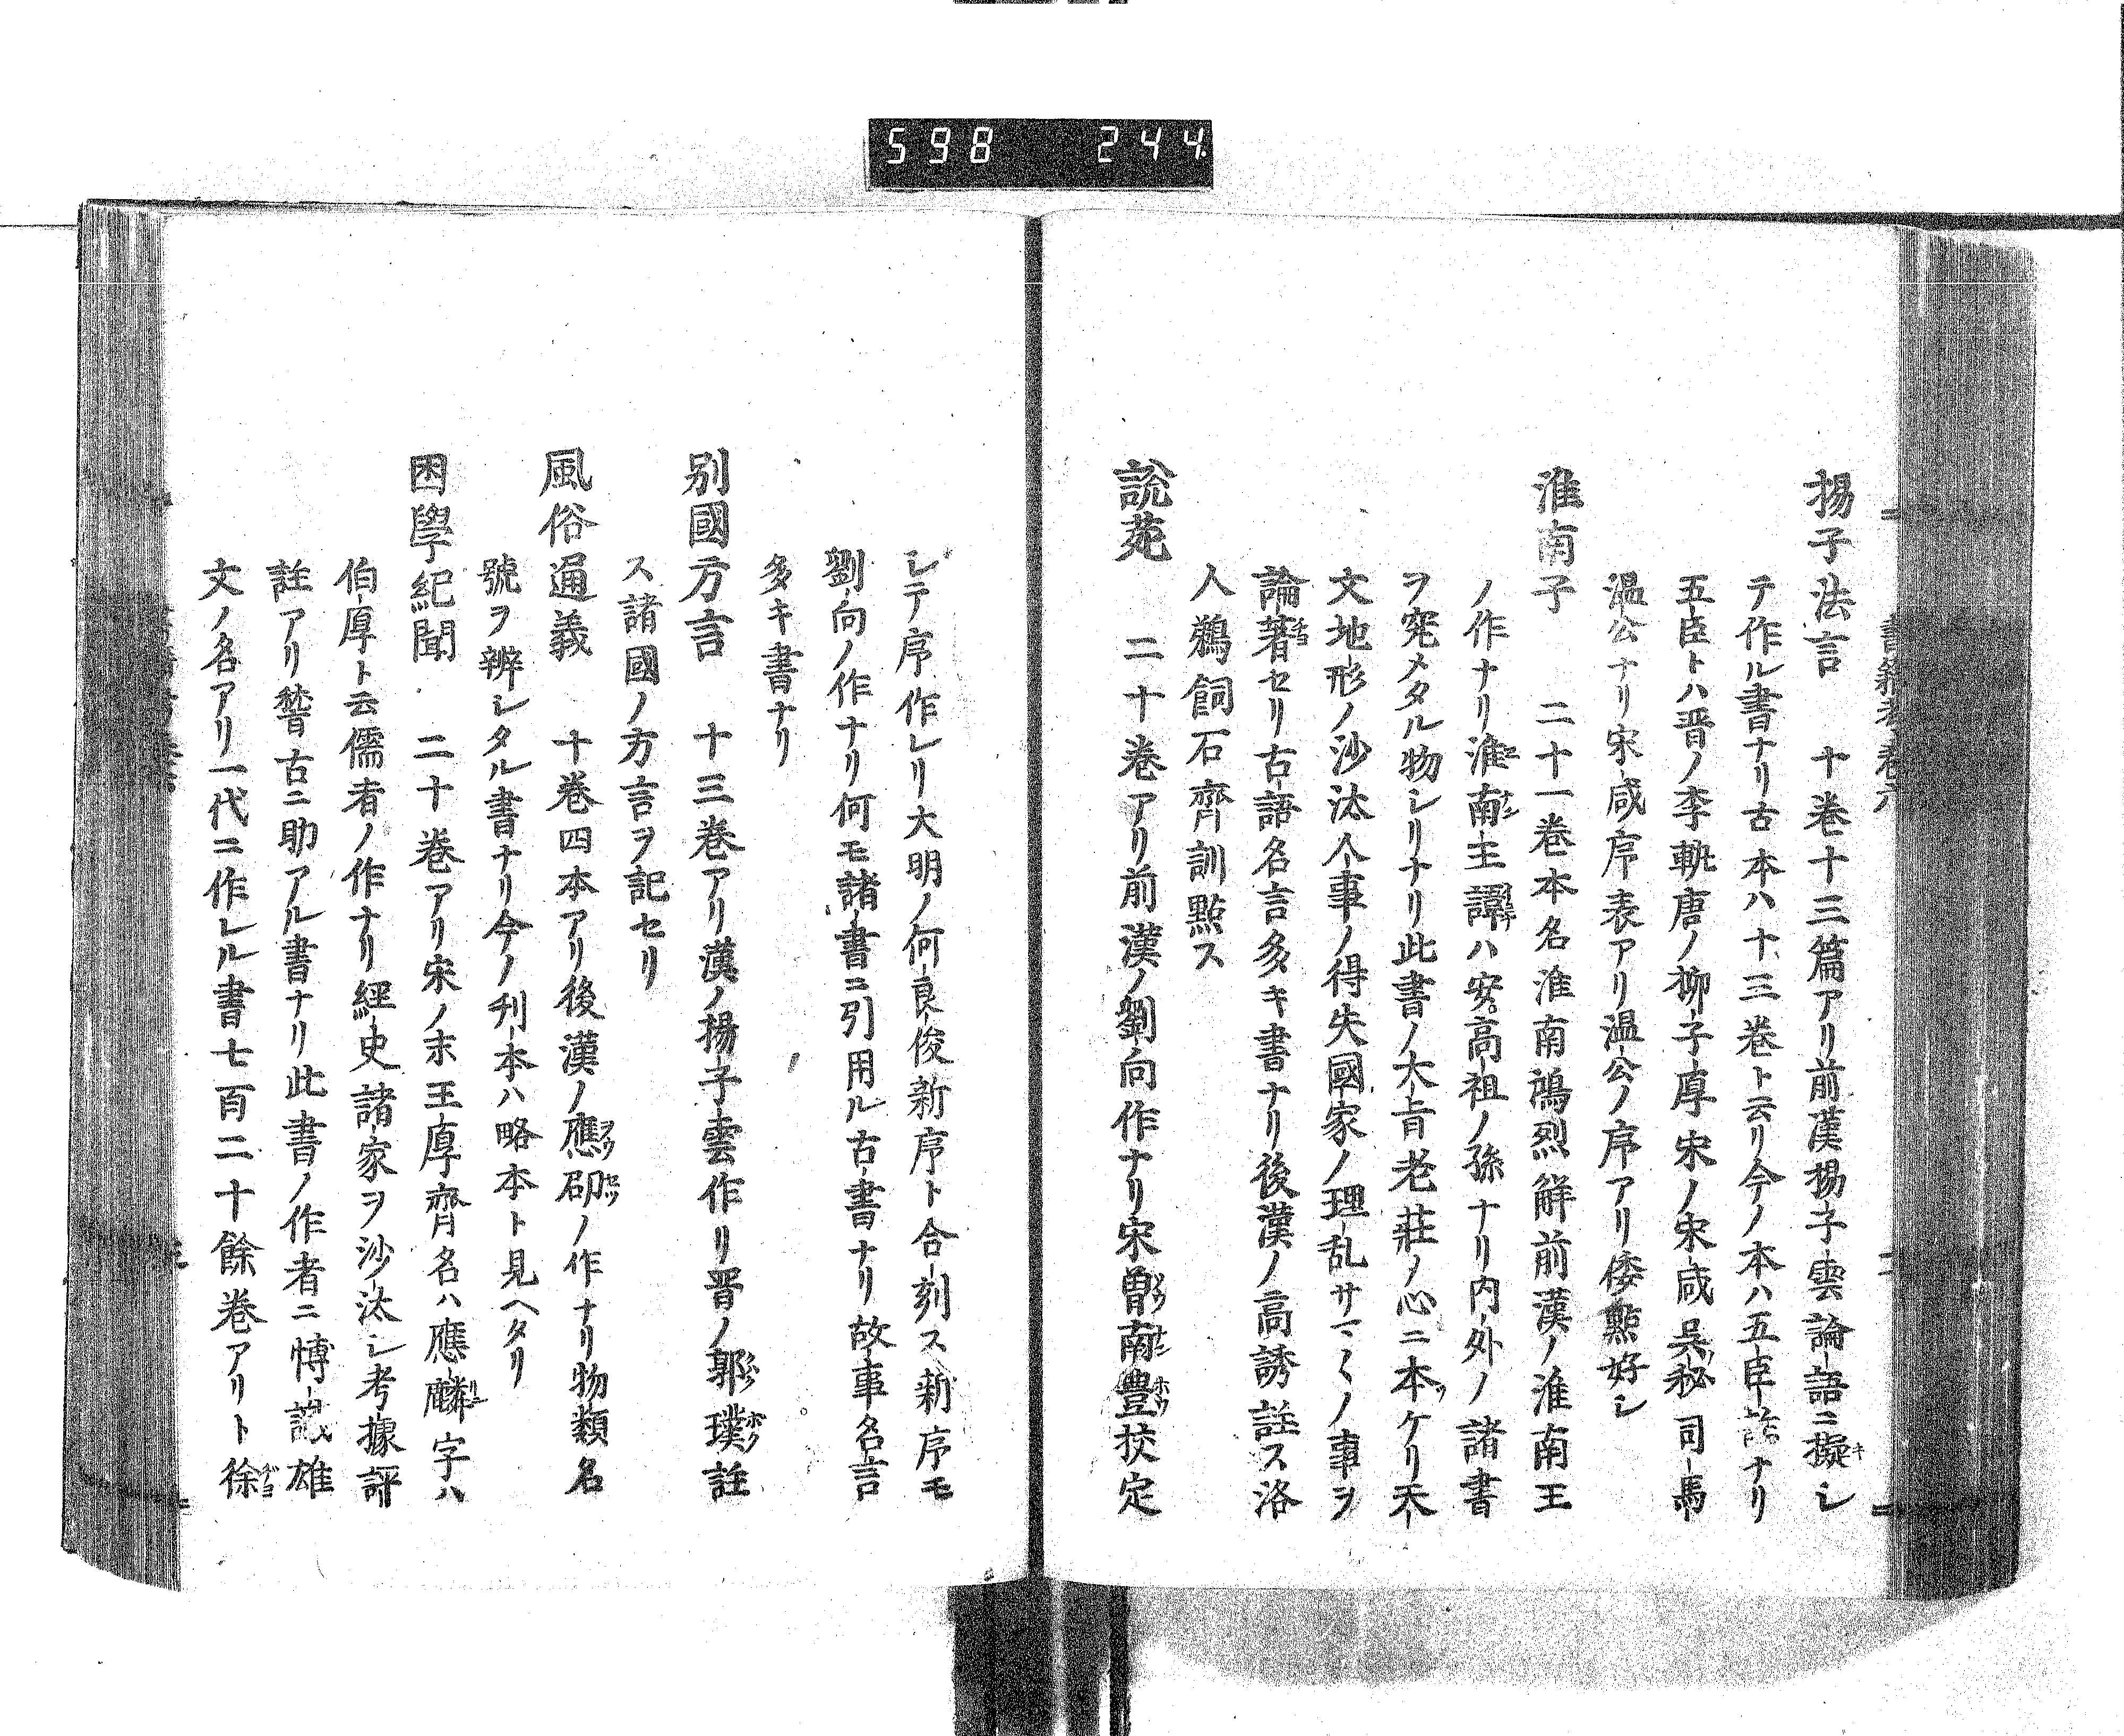 598 244
揚子法言 十巻十三篇アリ前漢揚子雲論語ニ擬シ
テ作ル書ナリ古本ハ十三巻ト云リ今ノ本ハ五臣註ナリ
五臣トハ晋ノ李軌唐ノ柳子厚宋ノ宋咸呉秘司馬
温公ナリ宋咸序表アリ温公ノ序アリ倭點好シ
淮南子 二十一巻本名淮南鴻烈解前漢ノ淮南王
ノ作ナリ淮南王諱ハ安高祖ノ孫ナリ内外ノ諸書
ヲ究メタル物シリナリ此書ノ大旨老荘ノ心ニ本ケリ天
文地形ノ沙汰人事ノ得失國家ノ理乱サマ〱ノ事ヲ
論著セリ古語名言多キ書ナリ後漢ノ高誘註ス洛
人鵜飼石齊訓點ス
説苑 二十巻アリ前漢ノ劉向作ナリ宋曽南豊挍定
シテ序作レリ大明ノ何良俊新序ト合刻ス新序モ
劉向ノ作ナリ何モ諸書ニ引用ル古書ナリ故事名言
多キ書ナリ
別國方言 十三巻アリ漢ノ揚子雲作リ晋ノ郭璞註
ス諸國ノ方言ヲ記セリ
風俗通義 十巻四本アリ後漢ノ應劭ノ作ナリ物類名
號ヲ辨シタル書ナリ今ノ刋本ハ略本ト見ヘタリ
困學紀聞 二十巻アリ宋ノ末王厚齊名ハ應麟字ハ
伯厚ト云儒者ノ作ナリ經史諸家ヲ沙汰シ考據評
註アリ稽古ニ助アル書ナリ此書ノ作者ニ博識雄
文ノ名アリ一代ニ作レル書七百二十餘巻アリト徐